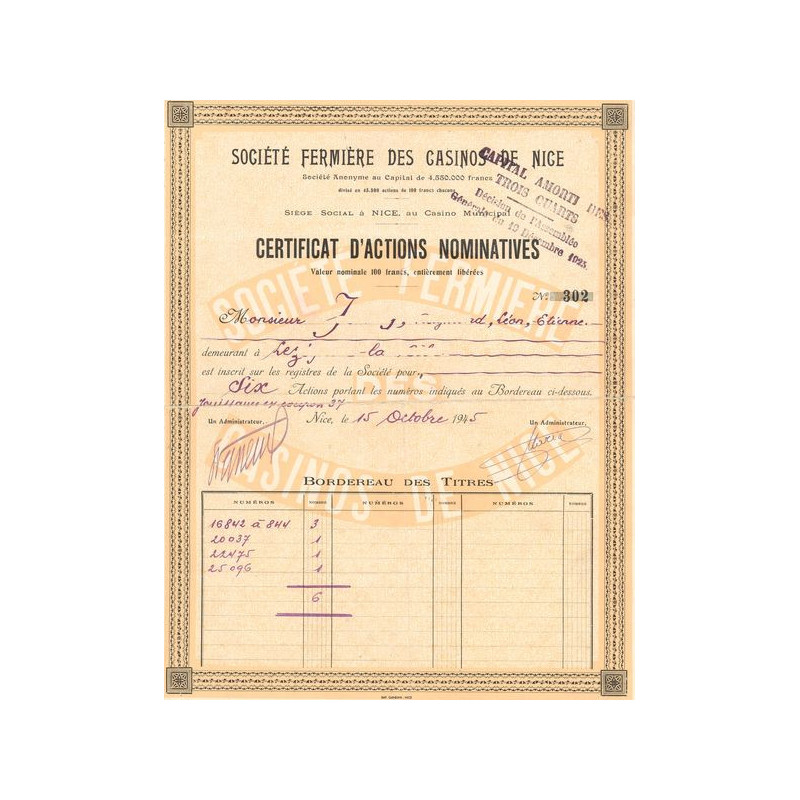 SOCIÉTÉ FERMIÈRE DES CASINOS DE NICE
Société Anonyme au Capital de 4.550.000 francs
divisé en 45.500 actions de 100 francs chacune
SIÈGE SOCIAL à NICE, au Casino Municipal
CAPITAL AMORTI DES
TROIS QUARTS
Décision de l'Assemblée
Générale du 19 Décembre 1925
CERTIFICAT D'ACTIONS NOMINATIVES
Valeur nominale 100 francs, entièrement libérées
No 302
SOCIETE FERMIERE
DES
CASINOS DE NICE
Monsieur Léon, Etienne
demeurant à la
est inscrit sur les registres de la Société pour
Six Actions portant les numéros indiqués au Bordereau ci-dessous.
Jouissance ex coupon 37
Nice, le 15 Octobre 1945
Un Administrateur.
Un Administrateur.
BORDEREAU DES TITRES
NUMÉROS NOMBRE NUMÉROS NOMBRE NUMÉROS NOMBRE
16842 à 844 3
20037 1
22475 1
25096 1
6